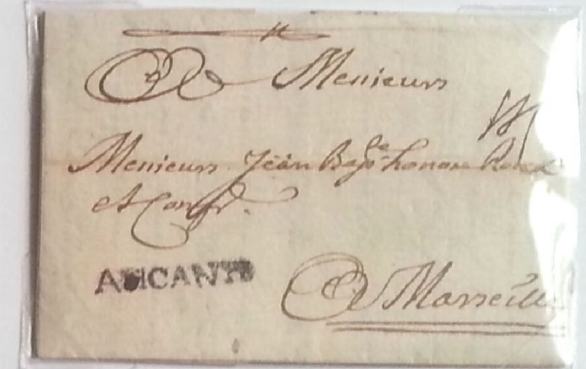 A Messieurs
Messieurs Jean Bapte honoré Roux
et Comp.
ALICANTE
A Marseille